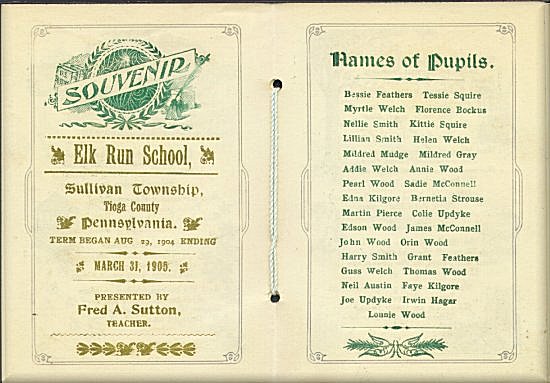 SOUVENIR
Elk Run School,
Sullivan Township,
Tioga County
Pennsylvania.
TERM BEGAN AUG 29, 1904 ENDING
MARCH 31, 1905.
PRESENTED BY
Fred A. Sutton,
TEACHER.
Names of Pupils.
Bessie Feathers Tessie Squire
Myrtle Welch Florence Bockus
Nellie Smith Kittie Squire
Lillian Smith Helen Welch
Mildred Mudge Mildred Gray
Addie Welch Annie Wood
Pearl Wood Sadie McConnell
Edna Kilgore Bernetia Strouse
Martin Pierce Colie Updyke
Edson Wood James McConnell
John Wood Orin Wood
Harry Smith Grant Feathers
Guss Welch Thomas Wood
Neil Austin Faye Kilgore
Joe Updyke Irwin Hagar
Lonnie Wood